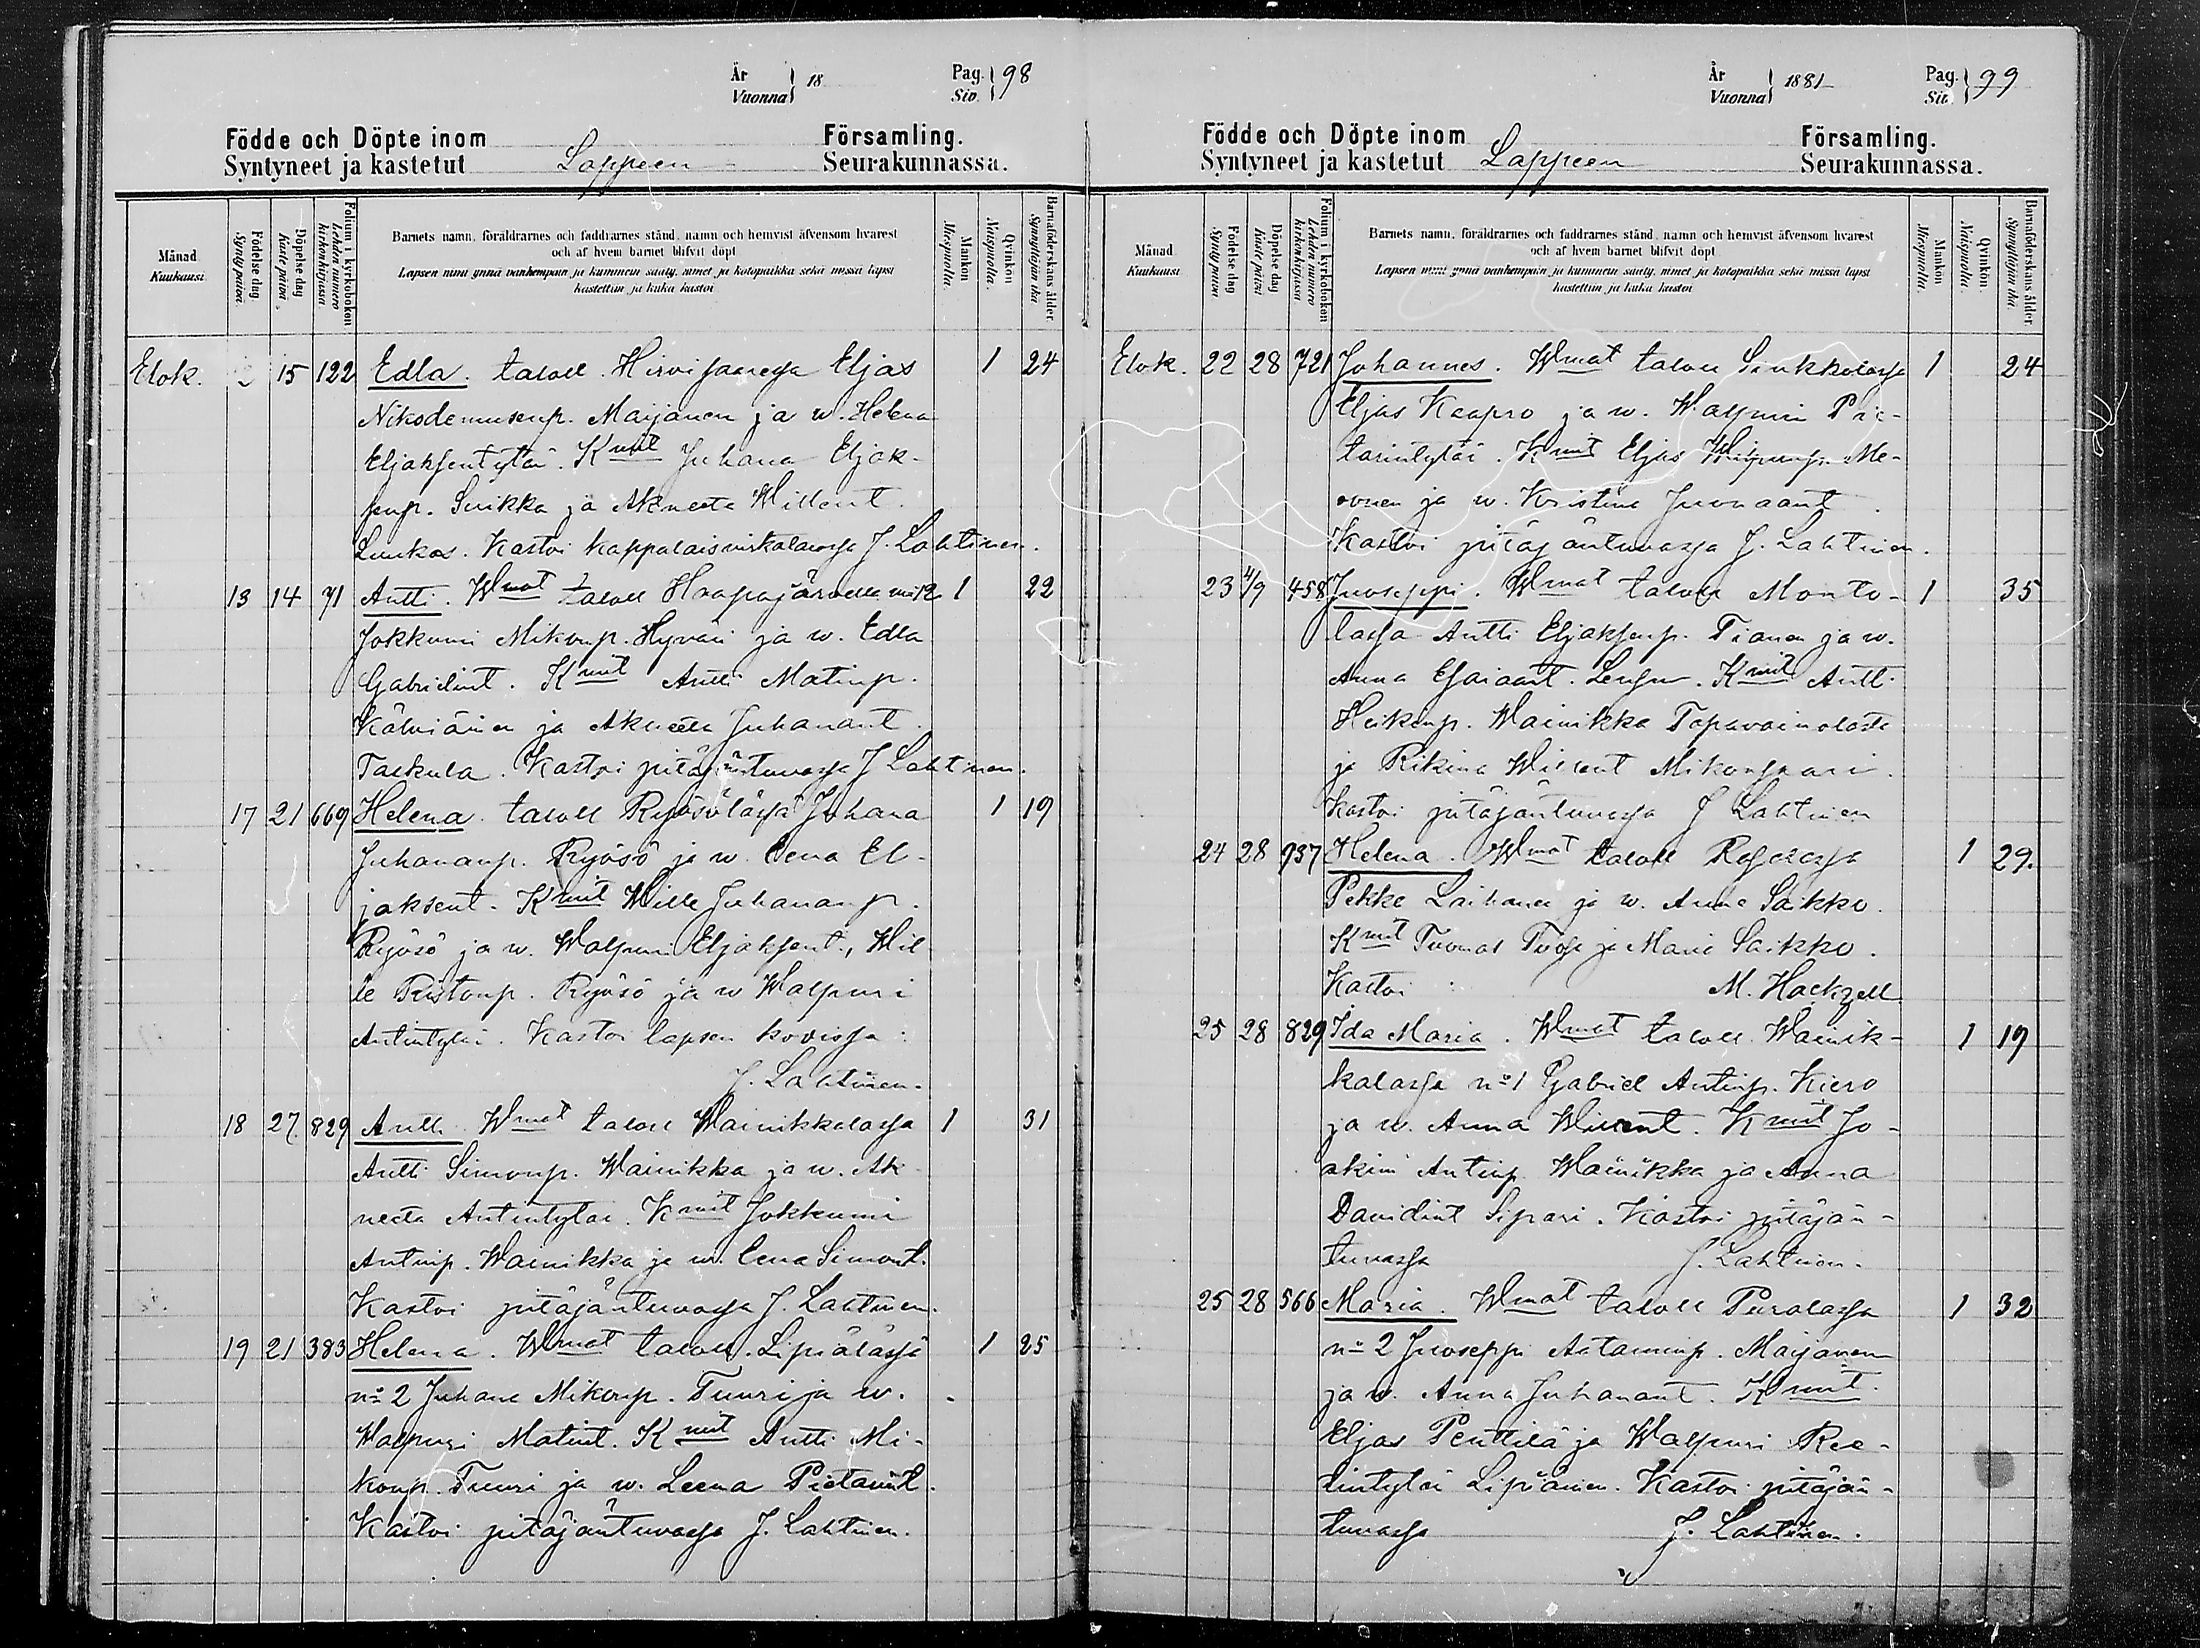 År
Vuonna } 18
Pag.
Siv. } 98
Födde och Döpte inom Församling.
Syntyneet ja kastetut Lappeen Seurakunnassa.
Månad
Kuukausi.
Födelse dag
Synty päivä.
Döpelse dag
Kaste päivä.
Folium i kyrkoboken
Lehden numero
kirkonkirjassa
Barnets namn, föräldrarnes och faddrarnes stånd, namn och hemvist äfvensom hvarest
och af hvem barnet blifvit döpt
Lapsen nimi ynnä vanhempain ja kummein sääty, nimet ja kotopaikka sekä missä lapsi
kastettiin ja kuka kastoi
Mankön
Miespuolia.
Qvinkön
Naispuolia.
Barnaföderskans ålder.
Synnyttäjän ikä.
Elok. 15 122 Edla. taloll. Hirvisaaressa Eljas 1 24
Nikodemusenp. Maijanen ja w. Helena
Eljaksentytär. Kmit Juhana Eljak-
senp. Suikka ja Akneeta Willent.
Luukas. Kastoi kappalaisvirkatalossa J. Lahtinen.
13 14 71 Antti. Wmat taloll Haapajärvella no 12 1 22
Jokkumi Mikonp. Hyväri ja w. Edla
Gabrielint. Kmit Antti Matinp.
Kälviäinen ja Akneeta Juhanant.
Taskula. Kastoi pitäjäntuvassa J Lahtinen.
17 21 669 Helena. taloll Ryösölässä Juhana 1 19
Juhananp. Ryösö ja w. Leena El-
jaksent. Kmit Wille Juhananp.
Ryösö ja w. Walpuri Eljaksent., Wil-
le Ristonp. Ryösö ja w Walpuri
Antintytär. Kastoi lapsen kodissa:
J. Lahtinen.
18 27. 829 Antti. Wmat taloll Wainikkalassa 1 31
Antti Simonp. Wainikka ja w. Ak-
neeta Antintytär. Kmit Jokkumi
Antinp. Wainikka ja w. Leena Simont.
Kastoi pitäjäntuvassa J. Lahtinen.
19 21 383 Helena. Wmat taloll. Lipiälässä 1 25
no 2 Juhana Mikonp. Tuuri ja w.
Walpuri Matint. Kmit Antti Mi-
konp. Tuuri ja w. Leena Pietarint.
Kastoi pitäjäntuvassa J. Lahtinen.
År
Vuonna } 1881
Pag.
Siv. } 99
Födde och Döpte inom Församling.
Syntyneet ja kastetut Lappeen Seurakunnassa.
Månad
Kuukausi
Födelse dag
Synty päivä
Döpelse dag
Kaste päivä
Folium i kyrkoboken
Lehden numero
kirkonkirjassa
Barnets namn, föräldrarnes och faddrarnes stånd, namn och hemvist äfvensom hvarest
och af hvem barnet blifvit döpt
Lapsen nimi ynnä vanhempain ja kummein sääty, nimet ja kotopaikka sekä missä lapsi
kastettiin ja kuka kastoi
Mankön
Miespuolia.
Qvinkön.
Naispuolia.
Barnaföderskans ålder.
Synnyttäjän ikä.
Elok. 22 28 721 Johannes. Wmat taloll Sinkkolassa 1 24
Eljas Kaapro ja w. Walpuri Pie-
tarintytär. Kmit Eljas Me-
ovnen ja w. Kristina Juonaant.
Kastoi pitäjäntuvassa J. Lahtinen.
23 4/9 458 Juoseppi. Wmat taloll Monto- 1 35
lassa Antti Eljaksenp. Tianen ja w.
Anna Esaiaant. Kmit Antti
Heikinp. Wainikka Tapavainolasta
ja Rikina Willent Mikonsaari.
Kastoi pitäjäntuvassa J Lahtinen
24 28 737 Helena. Wmat taloll 1 29.
Pekka Laihanen ja w. Anna Saikko.
Kmit Tuomas ja Maria Saikko.
Kastoi: M. Hackzell
25 28 829 Ida Maria. Wmat taloll. Wainik- 1 19
kalassa no 1 Gabriel Antinp. Kiero
ja w. Anna Willent. Kmit Jo-
akim Antinp. Wainikka ja Anna
Davidint Sipari. Kastoi pitäjän-
tuvassa J. Lahtinen.
25 28 566 Maria. Wmat taloll Puralassa 1 32
no 2 Juoseppi Aataminp. Maijanen
ja w. Anna Juhanant. Kmit.
Eljas Penttilä ja Walpuri Ree-
tintytär Lipiäinen. Kastoi pitäjän-
tuvassa J. Lahtinen.